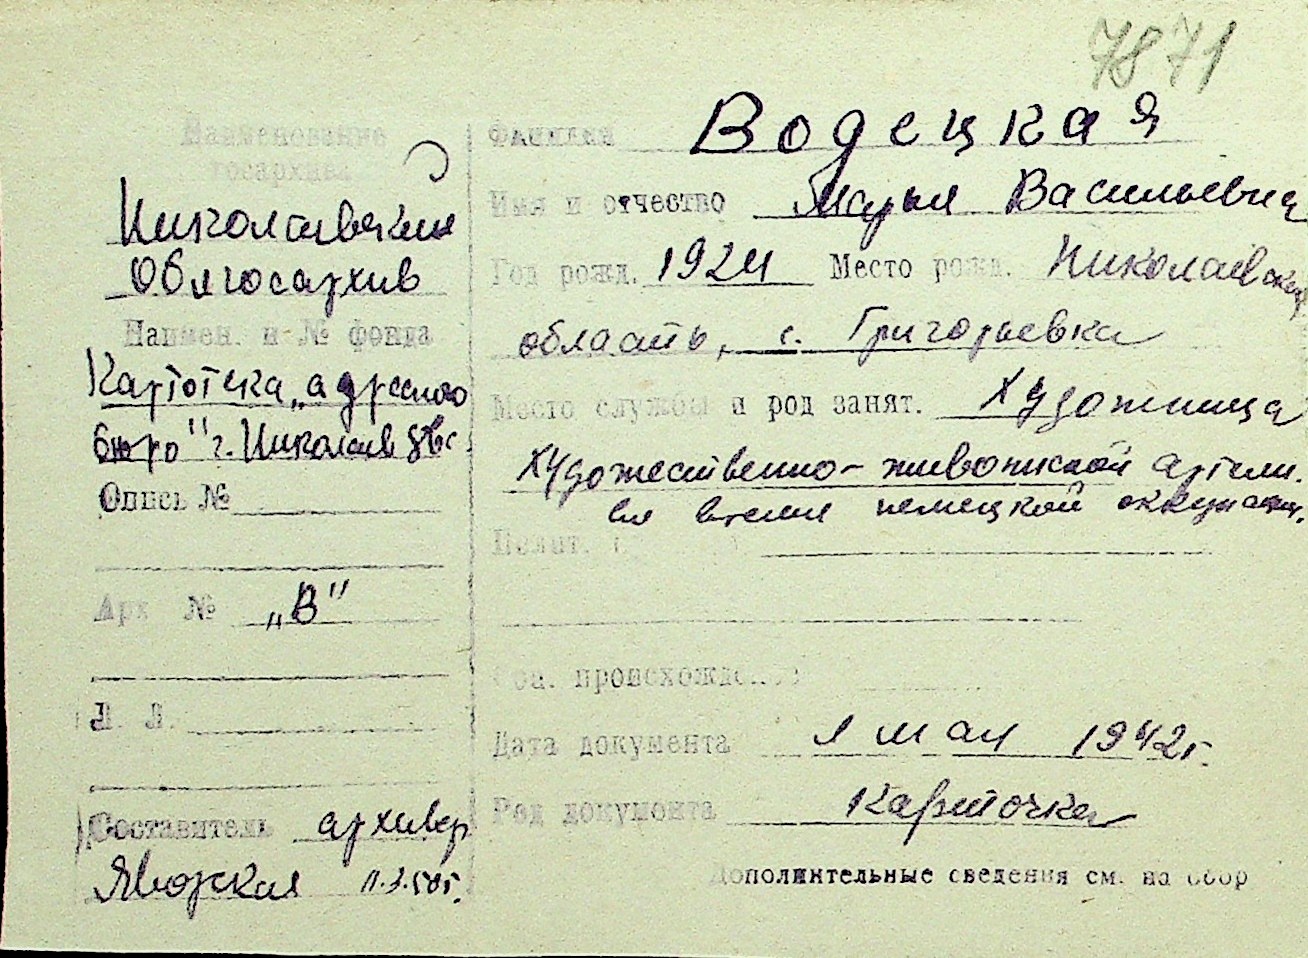 7871
Наименование
госархива
Николаевский
Облгосархив
Наимен. и № фонда
Картотека „адресного
бюро" г. Николаев
Опись №
Арх № „В"
Л. Л.
Составитель архивар
Яворская 11.3.50г.
Фамилия Водецкая
Имя и отчество Марья Васильевна
Год рожд. 1924 Место рожд. Николаевская
область, с. Григорьевка
Место службы и род занят. Художница
Художественно-живописной артели.
во время немецкой оккупации.
Полит.
Соц. происхождение
Дата документа 1 мая 1942г.
Род документа Карточка
Дополнительные сведения см. на обор